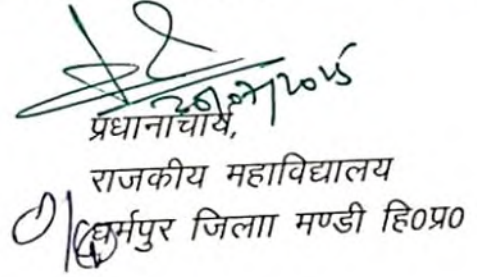 20/07/2025
प्रधानाचार्य,
राजकीय महाविद्यालय
धर्मपुर जिलाा मण्डी हि०प्र०